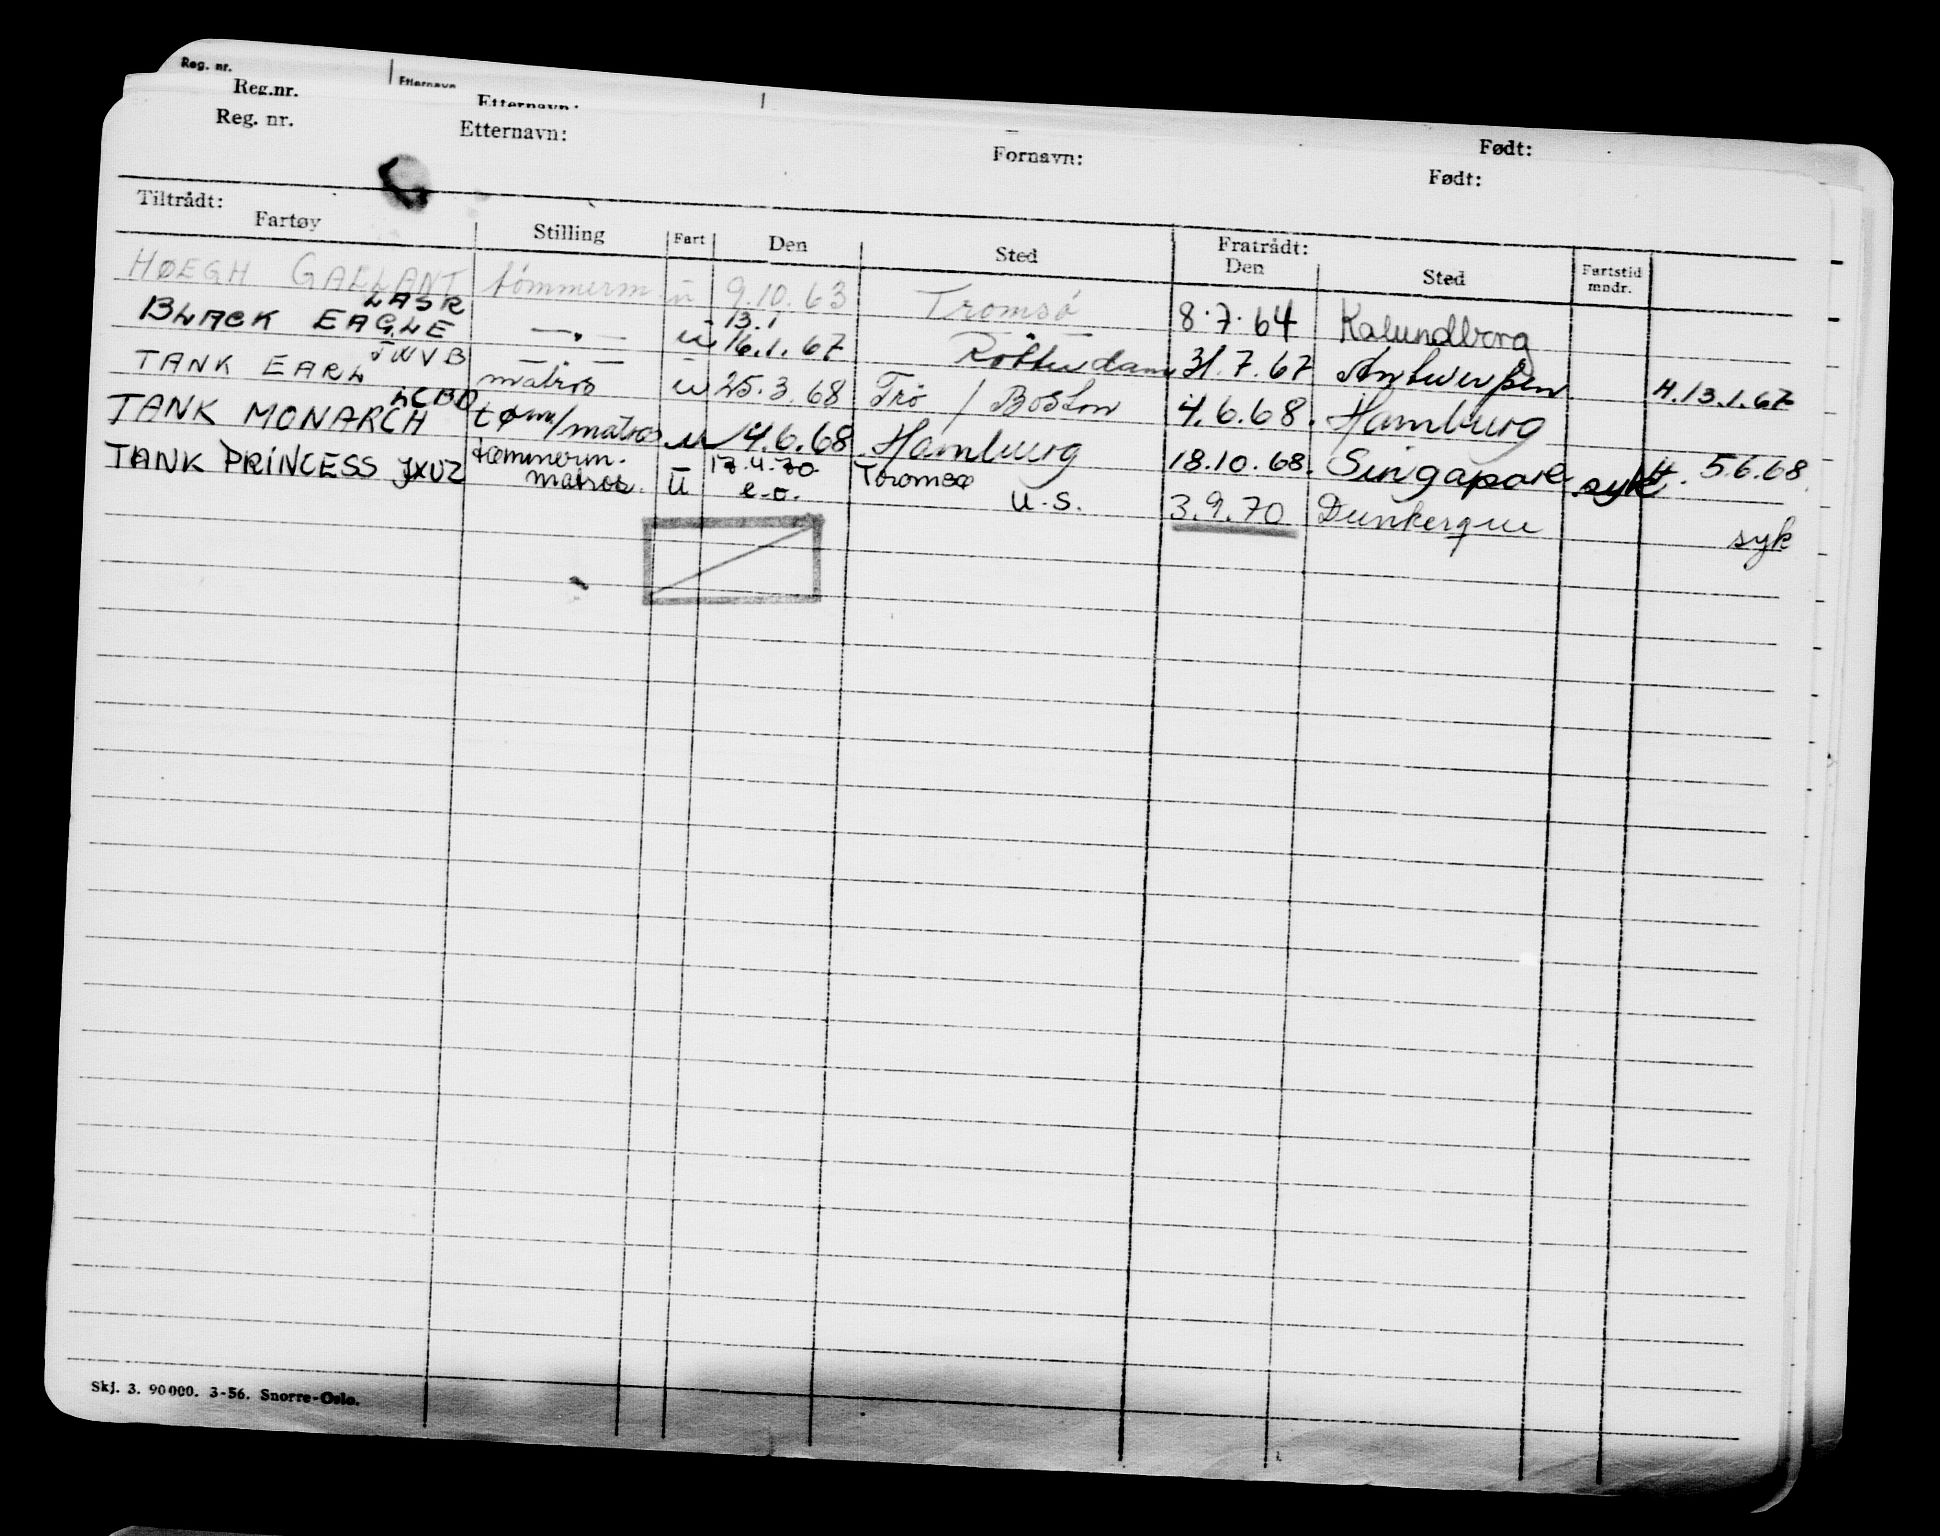 Reg. nr. Etternavn
Reg.nr. Etternavn: Født:
Reg. nr. Etternavn: Fornavn: Født:
Tiltrådt: Fratrådt:
Fartøy Stilling Fart Den Sted Den Sted Fartstid mndr.
HØEGH GALLANT tømmerm u 9.10.63 Tromsø 8.7.64 Kalundborg
LASR 13.1
BLACK EAGLE — " — u 16.1.67 Rotterdam 31.7.67 Antwerpen H.13.1.67
JWVB — " —
TANK EARL matros u 25.3.68 Trø / Boston 4.6.68. Hamburg
LCBD
TANK MONARCH tøm/matros u 4.6.68 Hamburg 18.10.68. Singapore syk H. 5.6.68.
TANK PRINCESS JXUZ tømmerm. matros. U 17.4.70 e.o. Tromsø U.S. 3.9.70 Dunkerque syk
Skj. 3. 90000. 3-56. Snorre-Oslo.